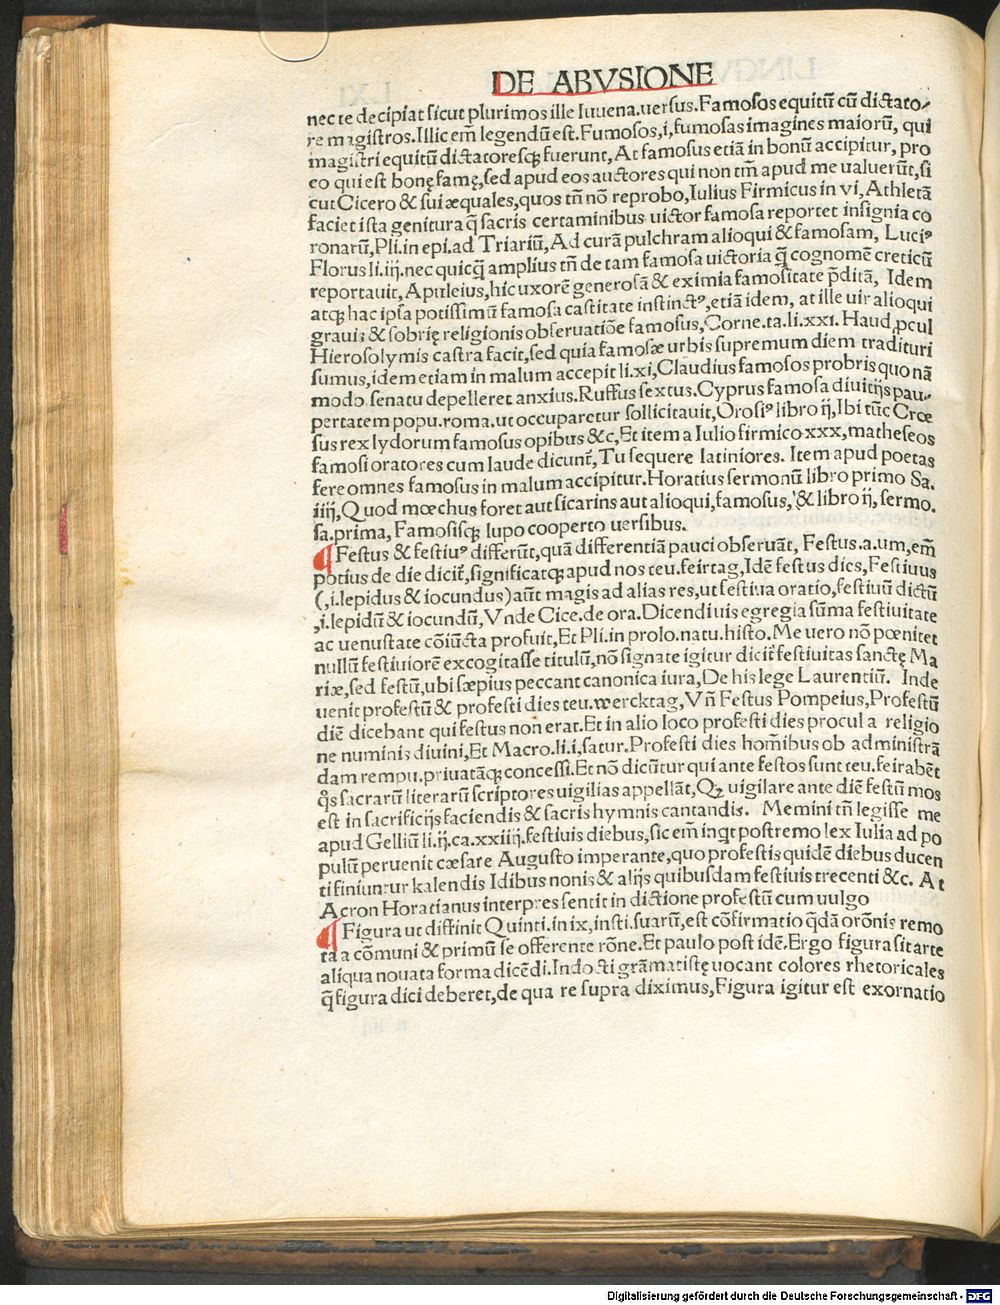 DE ABVSIONE
nec te decipiat sicut plurimos ille Iuuena.uersus.Famosos equitū cū dictato⸗
re magistros.Illic em̄ legendū est.Fumosos,i,fumosas imagines maiorū, qui
magistri equitū dictatoresq̨ fuerunt, At famosus etiā in bonū accipitur, pro
eo qui est bonę famę,sed apud eos auctores qui non tm̄ apud me ualuerūt,si
cut Cicero & sui æquales,quos tn̄ nō reprobo,Iulius Firmicus in vi, Athletā
faciet ista genitura q̄ sacris certaminibus uictor famosa reportet insignia co
ronarū,Pli.in epi.ad Triariū, Ad curā pulchram alioqui & famosam, Luciꝰ
Florus li.iij.nec quicq̄ amplius tn̄ de tam famosa uictoria q̄ cognomē creticū
reportauit, Apuleius,hic uxorē generosā & eximia famositate p̄ditā, Idem
atq̨ hac ipsa potissimū famosa castitate instinctꝰ,etiā idem, at ille uir alioqui
grauis & sobrię religionis obseruatiōe famosus,Corne.ta.li.xxi. Haud ꝓcul
Hierosolymis castra facit,sed quia famosæ urbis supremum diem tradituri
sumus,idem etiam in malum accepit li.xi,Claudius famosos probris quo nā
modo senatu depelleret anxius.Ruffus sextus.Cyprus famosa diuitijs pau⸗
pertatem popu.roma.ut occuparetur sollicitauit,Orosiꝰ libro ij,Ibi tūc Crœ
sus rex lydorum famosus opibus &c,Et item a Iulio firmico xxx,matheseos
famosi oratores cum laude dicunt̄,Tu sequere latiniores. Item apud poetas
fere omnes famosus in malum accipitur.Horatius sermonū libro primo Sa.
iiij,Quod mœchus foret aut sicarius aut alioqui,famosus,& libro ij, sermo.
sa.prima, Famosisq̨ lupo cooperto uersibus.
¶ Festus & festiuꝰ differūt,quā differentiā pauci obseruāt, Festus.a.um,em̄
potius de die dicit̄,significatq̨ apud nos teu.feirtag,Idē festus dies,Festiuus
(,i.lepidus & iocundus) aūt magis ad alias res,ut festiua oratio,festiuū dictū
,i.lepidū & iocundū, Vnde Cice.de ora.Dicendi uis egregia sūma festiuitate
ac uenustate cōiūcta profuit,Et Pli.in prolo.natu.histo.Me uero nō pœnitet
nullū festiuiorē excogitasse titulū,nō signate igitur dicit̄ festiuitas sanctę Ma
riæ,sed festū,ubi sæpius peccant canonica iura, De his lege Laurentiū. Inde
uenit profestū & profesti dies teu.wercktag, Vn̄ Festus Pompeius,Profestū
diē dicebant qui festus non erat.Et in alio loco profesti dies procul a religio
ne numinis diuini,Et Macro.li.i,satur.Profesti dies hom̄ibus ob administrā
dam rempu.priuatāq̨ concessi.Et nō dicūtur qui ante festos sunt teu.feirabēt
q̄s sacrarū literarū scriptores uigilias appellāt,Qꝫ uigilare ante diē festū mos
est in sacrificijs faciendis & sacris hymnis cantandis. Memini tn̄ legisse me
apud Gelliū li.ij.ca.xxiiij.festiuis diebus,sic em̄ inqt postremo lex Iulia ad po
pulū peruenit cæsare Augusto imperante,quo profestis quidē diebus ducen
ti finiuntur kalendis Idibus nonis & alijs quibusdam festiuis trecenti &c. At
Acron Horatianus interpres sentit in dictione profestū cum uulgo
¶ Figura ut diffinit Quinti.in ix,insti.suarū,est cōfirmatio q̄dā orōnis remo
ta a cōmuni & primū se offerente rōne.Et paulo post idē.Ergo figura sit arte
aliqua nouata forma dicēdi.Indocti grāmatistę uocant colores rhetoricales
q̄ figura dici deberet,de qua re supra diximus,Figura igitur est exornatio
Digitalisierung gefördert durch die Deutsche Forschungsgemeinschaft - DFG